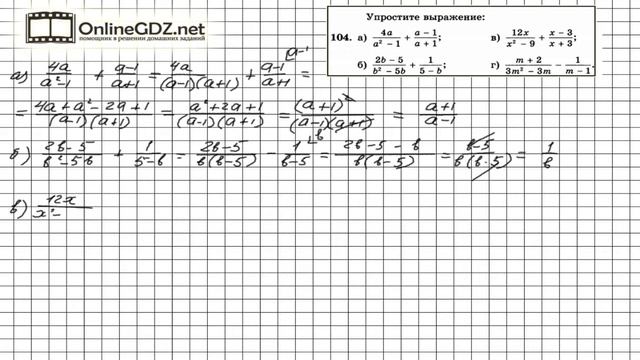 OnlineGDZ.net
помощник в решении домашних заданий
Упростите выражение:
104. а) 4a/(a² − 1) + (a − 1)/(a + 1); в) 12x/(x² − 9) + (x − 3)/(x + 3);
б) (2b − 5)/(b² − 5b) + 1/(5 − b); г) (m + 2)/(3m² − 3m) − 1/(m − 1).
а) 4a/(a²−1) + (a−1)/(a+1) = 4a/((a−1)(a+1)) + (a−1)/(a+1) (a−1 =
= (4a+a²−2a+1)/((a−1)(a+1)) = (a²+2a+1)/((a−1)(a+1)) = (a+1)²/((a−1)(a+1)) = (a+1)/(a−1)
б) (2b−5)/(b²−5b) + 1/(5−b) = (2b−5)/(b(b−5)) − 1/(b−5) (b = (2b−5−b)/(b(b−5)) = (b−5)/(b(b−5)) = 1/b
в) 12x/(x²−